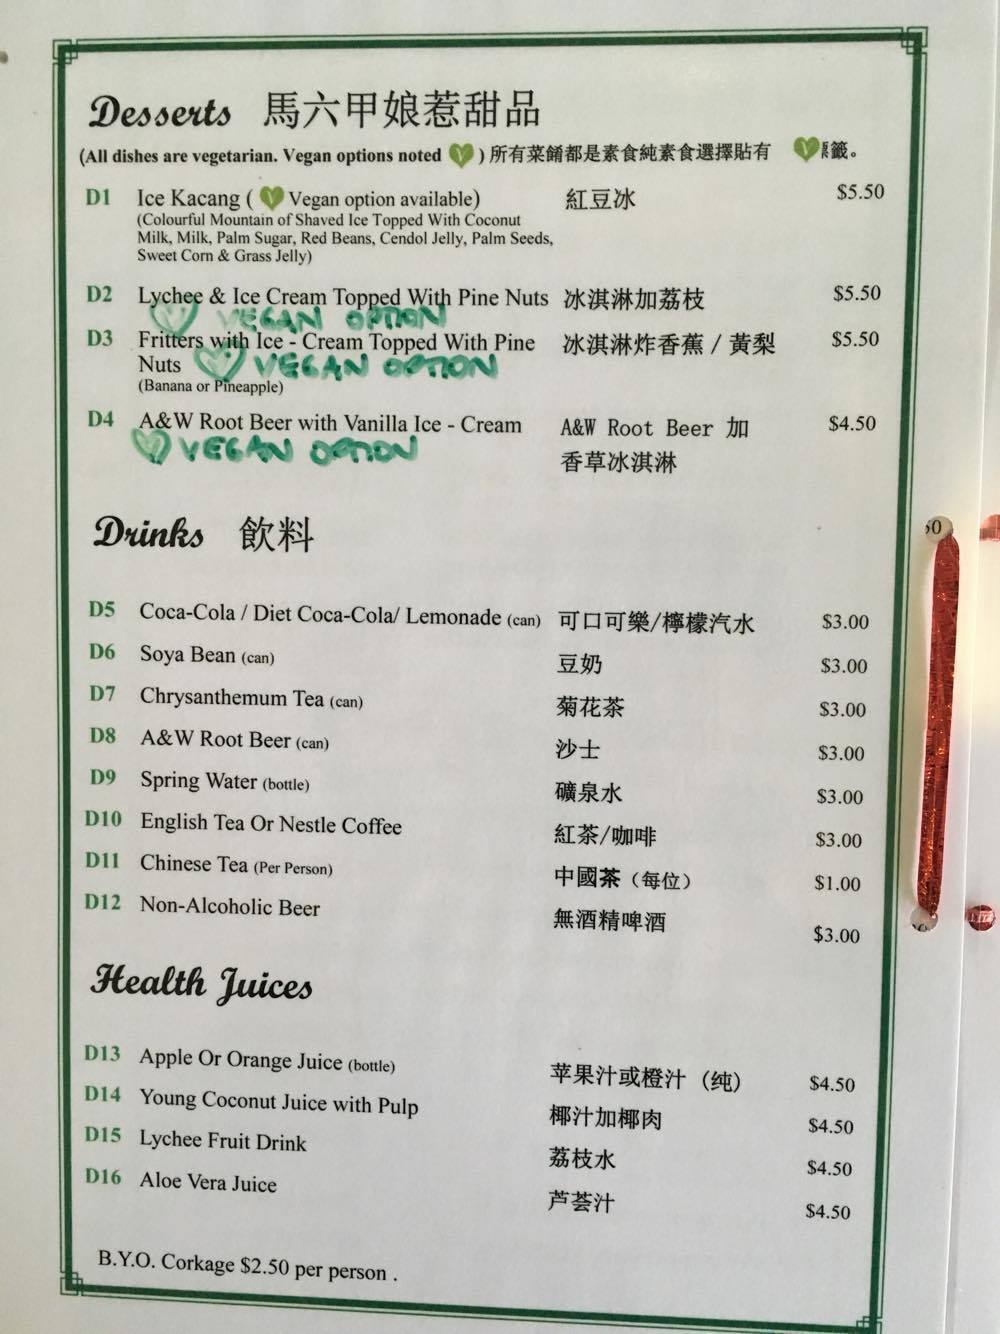 Desserts 馬六甲娘惹甜品
(All dishes are vegetarian. Vegan options noted V ) 所有菜餚都是素食純素食選擇貼有 V 標籤。
D1 Ice Kacang ( V Vegan option available) 紅豆冰 $5.50
(Colourful Mountain of Shaved Ice Topped With Coconut
Milk, Milk, Palm Sugar, Red Beans, Cendol Jelly, Palm Seeds,
Sweet Corn & Grass Jelly)
D2 Lychee & Ice Cream Topped With Pine Nuts 冰淇淋加荔枝 $5.50
VEGAN OPTION
D3 Fritters with Ice - Cream Topped With Pine 冰淇淋炸香蕉 / 黃梨 $5.50
Nuts VEGAN OPTION
(Banana or Pineapple)
D4 A&W Root Beer with Vanilla Ice - Cream A&W Root Beer 加 $4.50
VEGAN OPTION 香草冰淇淋
Drinks 飲料
D5 Coca-Cola / Diet Coca-Cola/ Lemonade (can) 可口可樂/檸檬汽水 $3.00
D6 Soya Bean (can) 豆奶 $3.00
D7 Chrysanthemum Tea (can) 菊花茶 $3.00
D8 A&W Root Beer (can) 沙士 $3.00
D9 Spring Water (bottle) 礦泉水 $3.00
D10 English Tea Or Nestle Coffee 紅茶/咖啡 $3.00
D11 Chinese Tea (Per Person) 中國茶（每位） $1.00
D12 Non-Alcoholic Beer 無酒精啤酒 $3.00
Health Juices
D13 Apple Or Orange Juice (bottle) 苹果汁或橙汁 (纯) $4.50
D14 Young Coconut Juice with Pulp 椰汁加椰肉 $4.50
D15 Lychee Fruit Drink 荔枝水 $4.50
D16 Aloe Vera Juice 芦荟汁 $4.50
B.Y.O. Corkage $2.50 per person .